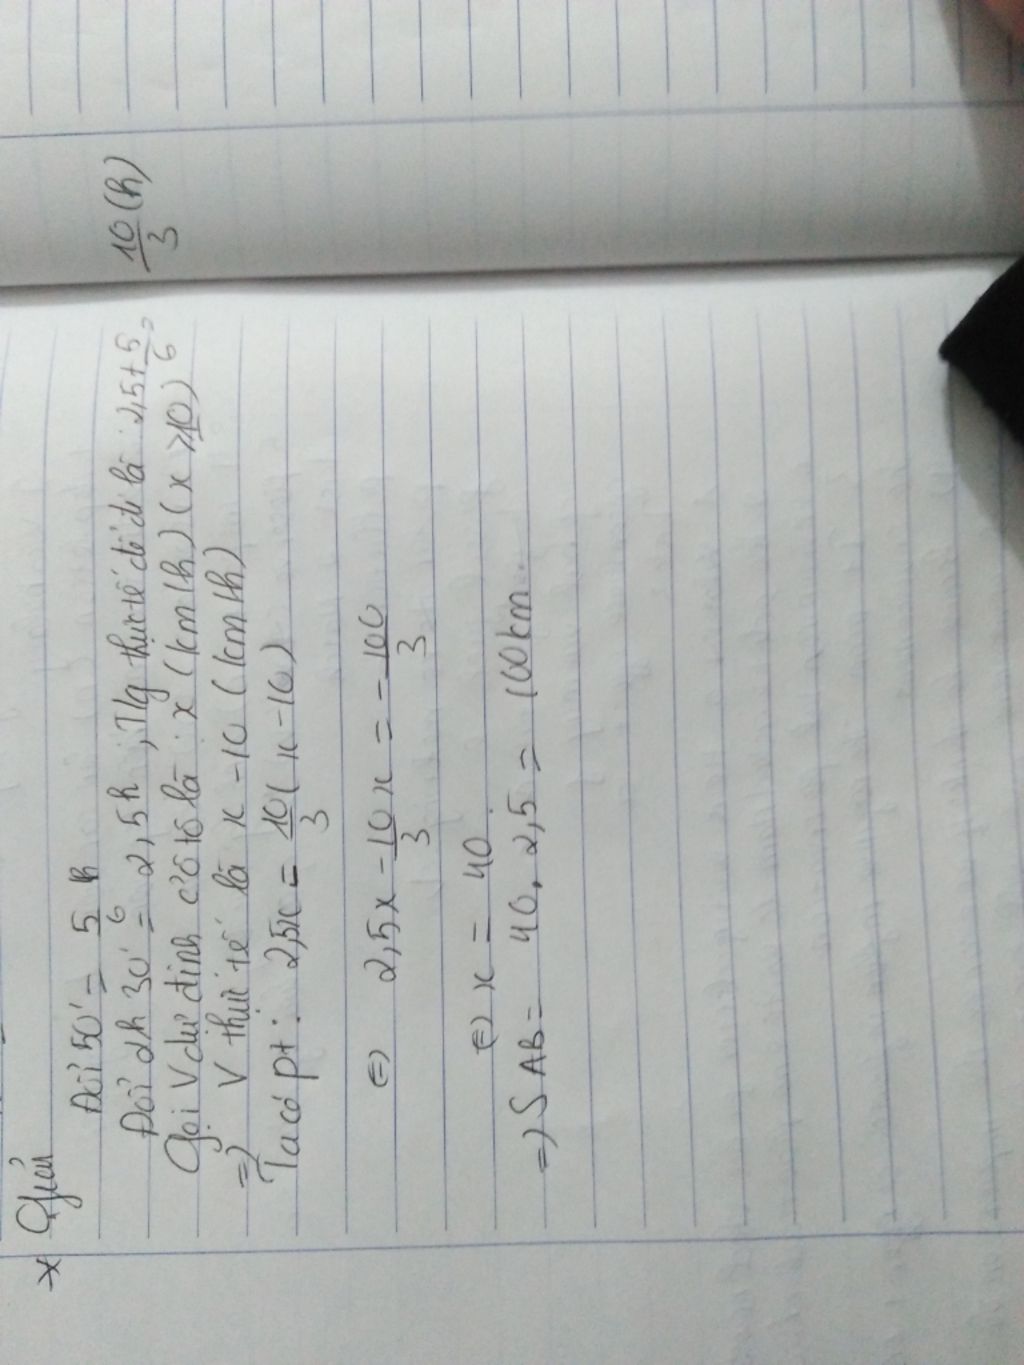 * Giải
Đổi 50' = 5/6 h
Đổi 2h 30' = 2,5h ; Tg thực tế để đi là : 2,5 + 5/6 = 10/3 (h)
Gọi V dự định ôtô là : x (km/h) (x > 10)
=) V thực tế là x - 10 (km/h)
Ta có pt : 2,5x = 10/3 (x - 10)
(=) 2,5x - 10/3 x = - 100/3
(=) x = 40
=) S AB = 40 . 2,5 = 100 km.